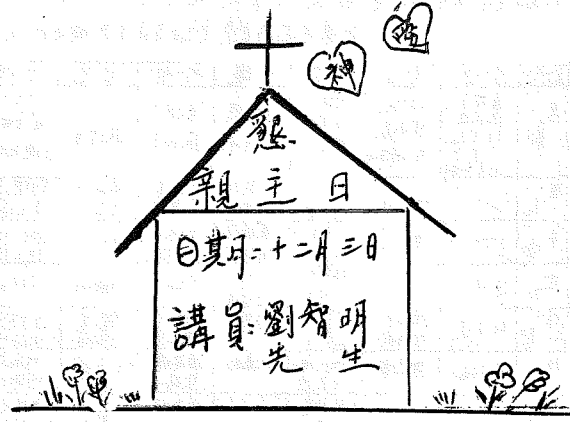 神
懇
親主日
日期:十二月三日
講員:劉智明
先生